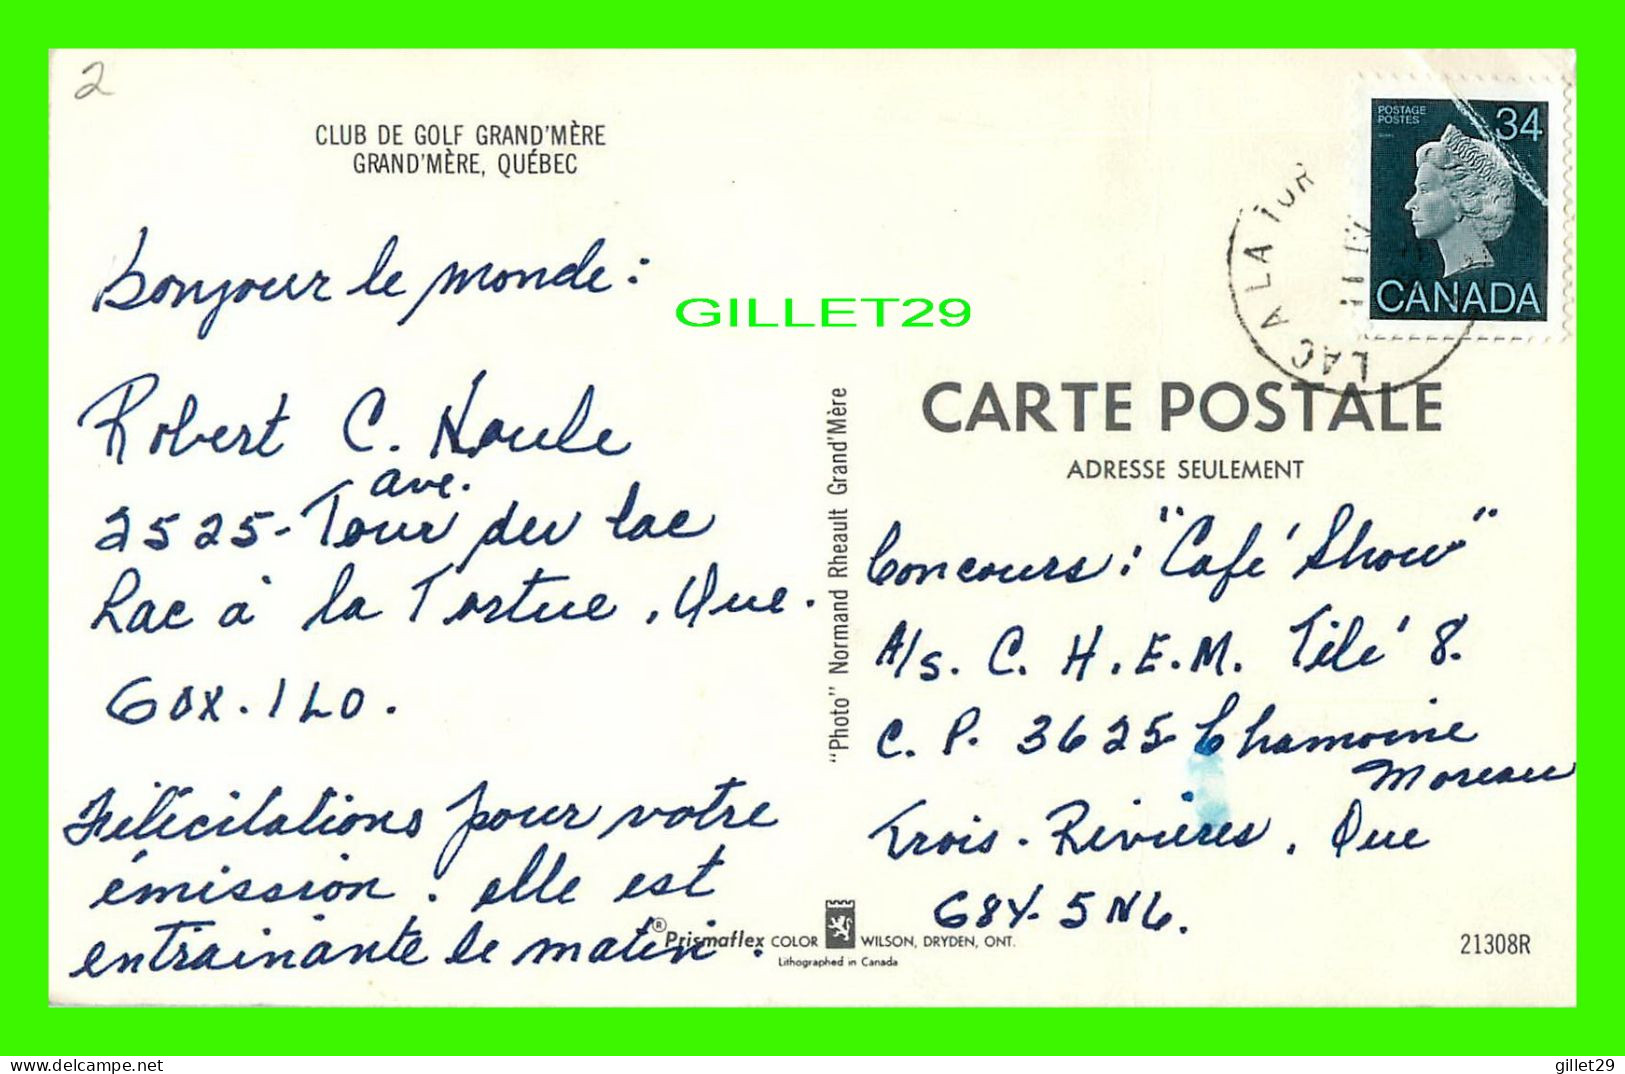 2
CLUB DE GOLF GRAND'MÈRE
GRAND'MÈRE, QUÉBEC
Bonjour le monde:
Robert C. Houle
ave.
2525-Tour du lac
Lac à la Tortue, Que.
G0X.1L0.
Félécitations pour votre
émission. elle est
entrainante le matin.
GILLET29
"Photo" Normand Rheault Grand'Mère
® Prismaflex COLOR
WILSON, DRYDEN, ONT.
Lithographed in Canada
POSTAGE
POSTES
34
CANADA
LAC A LA TOR
CARTE POSTALE
ADRESSE SEULEMENT
Concours: "Café Show"
A/s. C.H.E.M. Télé 8.
C.P. 3625 Chamoine
Moreau
Trois-Rivières, Que
G8Y-5N6.
21308R
gillet29
gillet29